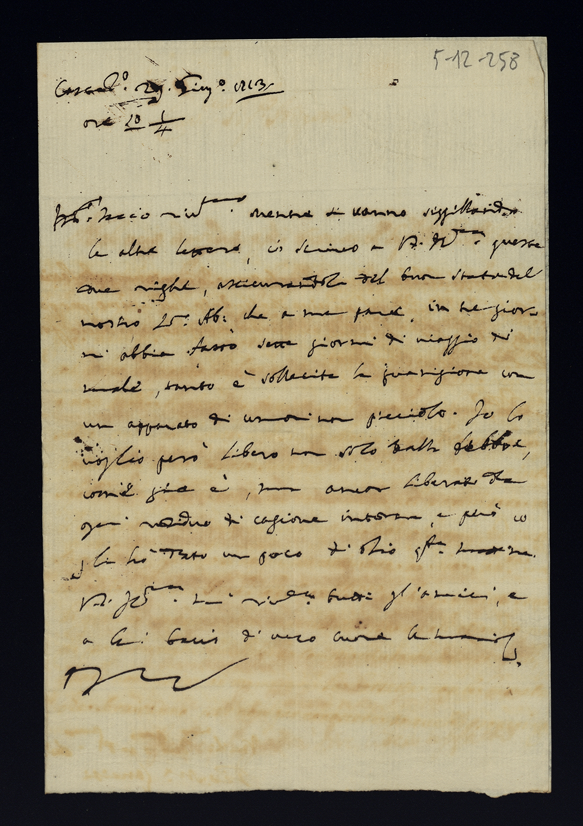 5-12-258
29. Giug.º
ore 20 1/4
mentre si vanno sigillando
le altre lettere, io scrivo a V. queste
due righe, assicurandola del buon stato del
nostro Ab: che a me pare, in tre gior
ni abbia fatto sette giorni di viaggio di
male, tanto è sollecita la guarigione con
un apparato di umori non picciolo. Io lo
voglio però libero non solo dalla febbre,
com'è già è, ma ancor liberato da
ogni residuo di cagione interna, e però io
gli hò dato un poco di olio
V. mi tutti gl'amici, e
a lei bacio di vero cuore le mani